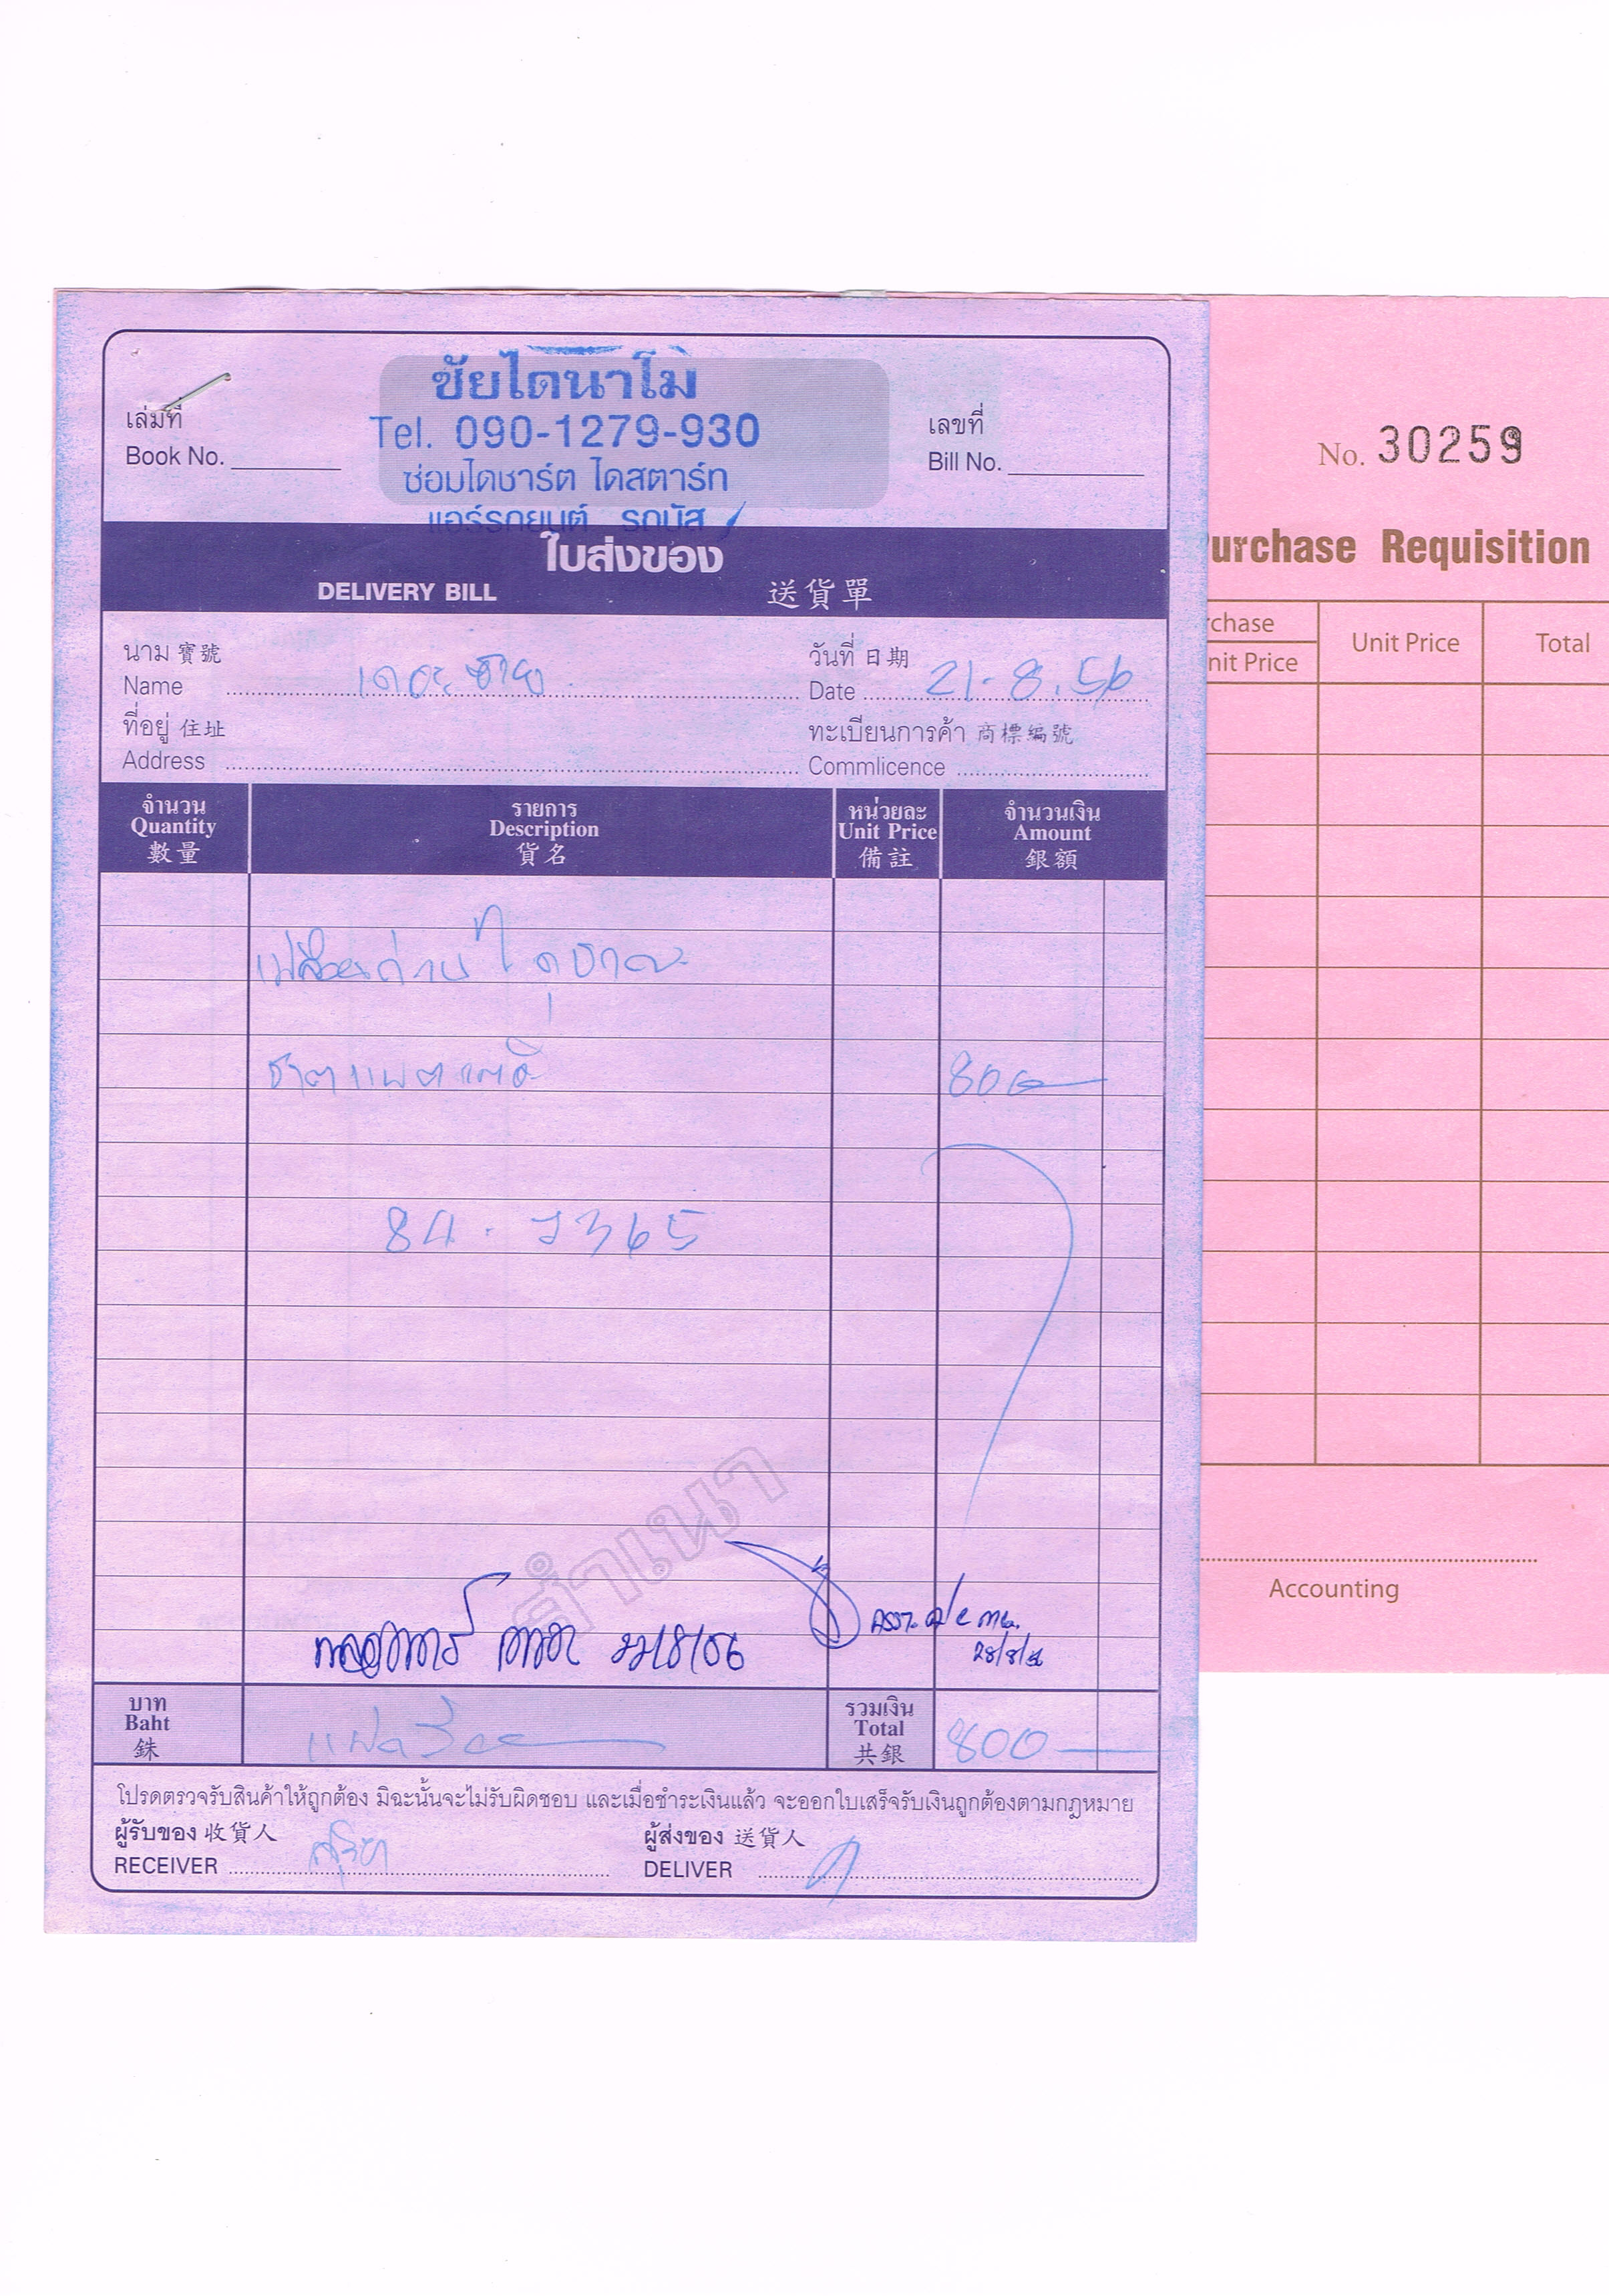 ชัยไดนาโม
เล่มที่
Book No.
Tel. 090-1279-930
เลขที่
Bill No.
ซ่อมไดชาร์ต ไดสตาร์ท
แอร์รถยนต์ รถบัส
ใบส่งของ
DELIVERY BILL 送貨單
นาม 寶號
Name
วันที่ 日期
Date 21.8.56
ที่อยู่ 住址
Address
ทะเบียนการค้า 商標編號
Commlicence
จำนวน
Quantity
數量
รายการ
Description
貨名
หน่วยละ
Unit Price
備註
จำนวนเงิน
Amount
銀額
800
84-7365
สำเนา
22/8/56
28/8/56
บาท
Baht
銖
รวมเงิน
Total
共銀
800
โปรดตรวจรับสินค้าให้ถูกต้อง มิฉะนั้นจะไม่รับผิดชอบ และเมื่อชำระเงินแล้ว จะออกใบเสร็จรับเงินถูกต้องตามกฎหมาย
ผู้รับของ 收貨人
RECEIVER
ผู้ส่งของ 送貨人
DELIVER
No. 30259
urchase Requisition
rchase
nit Price
Unit Price
Total
Accounting